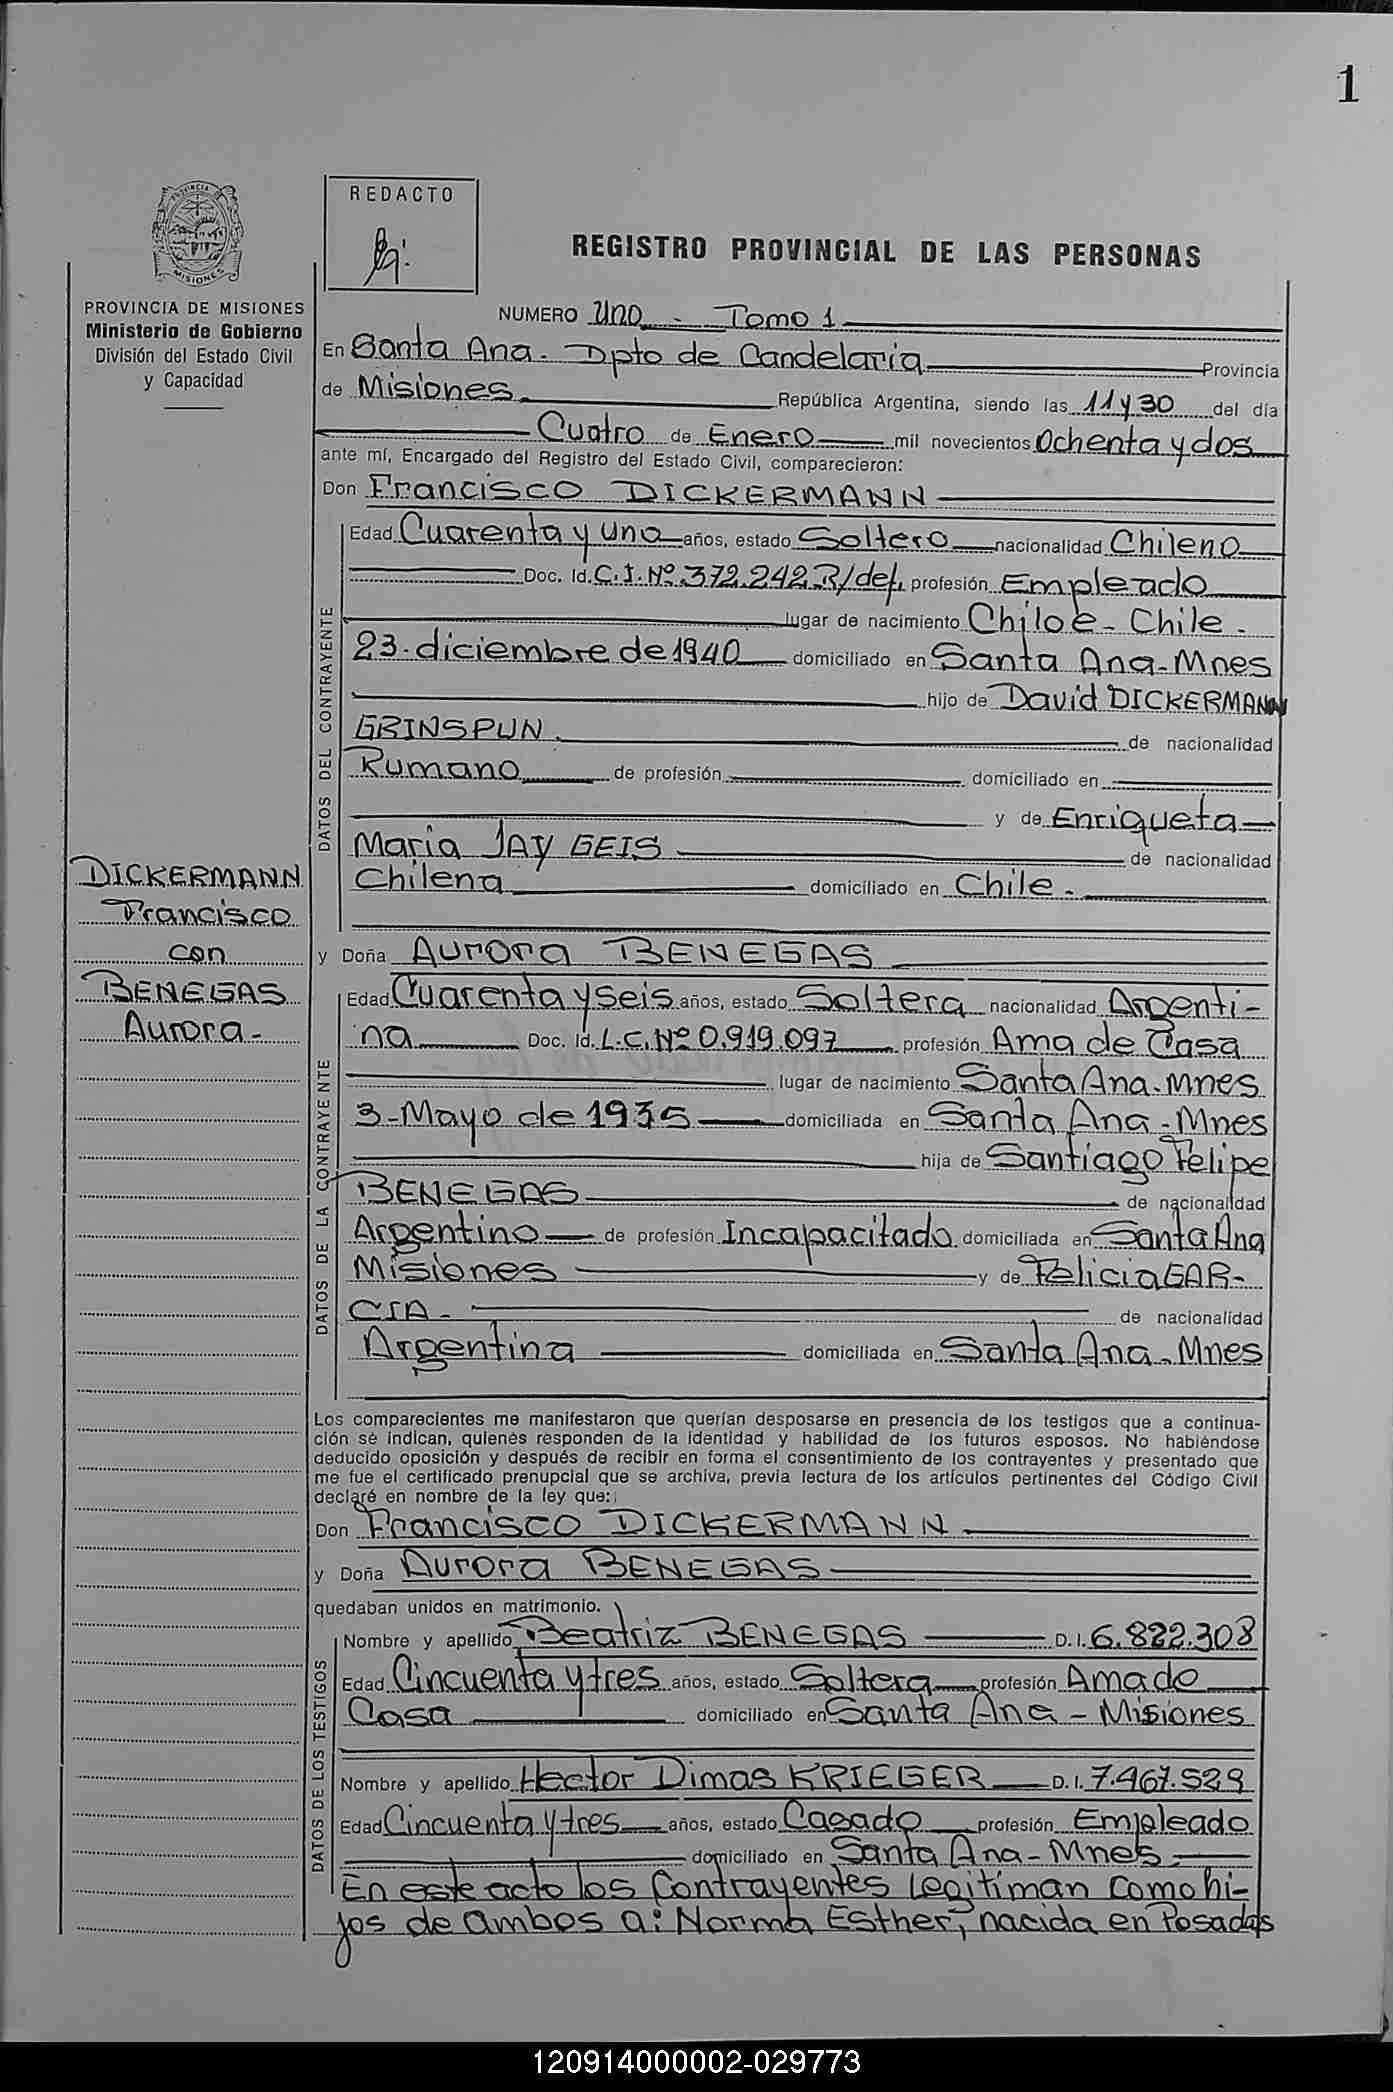 1
REDACTO
REGISTRO PROVINCIAL DE LAS PERSONAS
PROVINCIA DE MISIONES
Ministerio de Gobierno
División del Estado Civil
y Capacidad
NUMERO Uno - Tomo 1
En Santa Ana. Dpto de Candelaria Provincia
de Misiones República Argentina, siendo las 11 y 30 del día
Cuatro de Enero mil novecientos Ochenta y dos
ante mí, Encargado del Registro del Estado Civil, comparecieron:
Don Francisco DICKERMANN
DATOS DEL CONTRAYENTE
Edad Cuarenta y uno años, estado Soltero nacionalidad Chileno
Doc. Id. C.I. Nº 372.242 R/def. profesión Empleado
lugar de nacimiento Chiloé - Chile -
23. diciembre de 1940 domiciliado en Santa Ana-Mnes
hijo de David DICKERMANN
GRINSPUN de nacionalidad
Rumano de profesión domiciliado en
y de Enriqueta
Maria JAY GEIS de nacionalidad
Chilena domiciliado en Chile.
DICKERMANN
Francisco
con
BENEGAS
Aurora-
y Doña Aurora BENEGAS
DATOS DE LA CONTRAYENTE
Edad Cuarenta y seis años, estado Soltera nacionalidad Argenti-
na Doc. Id. L.C. Nº 0.919.097 profesión Ama de Casa
lugar de nacimiento Santa Ana-Mnes
3-Mayo de 1935 domiciliada en Santa Ana-Mnes
hija de Santiago Felipe
BENEGAS de nacionalidad
Argentino de profesión Incapacitado domiciliada en Santa Ana
Misiones y de Felicia GAR-
CIA- de nacionalidad
Argentina domiciliada en Santa Ana-Mnes
Los comparecientes me manifestaron que querían desposarse en presencia de los testigos que a continua-
ción se indican, quienes responden de la identidad y habilidad de los futuros esposos. No habiéndose
deducido oposición y después de recibir en forma el consentimiento de los contrayentes y presentado que
me fue el certificado prenupcial que se archiva, previa lectura de los artículos pertinentes del Código Civil
declaré en nombre de la ley que:
Don Francisco DICKERMANN
y Doña Aurora BENEGAS
quedaban unidos en matrimonio.
DATOS DE LOS TESTIGOS
Nombre y apellido Beatriz BENEGAS D.I. 6.822.308
Edad Cincuenta y tres años, estado Soltera profesión Ama de
Casa domiciliado en Santa Ana - Misiones
Nombre y apellido Hector Dimas KRIEGER D.I. 7.467.529
Edad Cincuenta y tres años, estado Casado profesión Empleado
domiciliado en Santa Ana-Mnes
En este acto los Contrayentes Legitiman como hi-
jos de ambos a: Norma Esther, nacida en Posadas
120914000002-029773